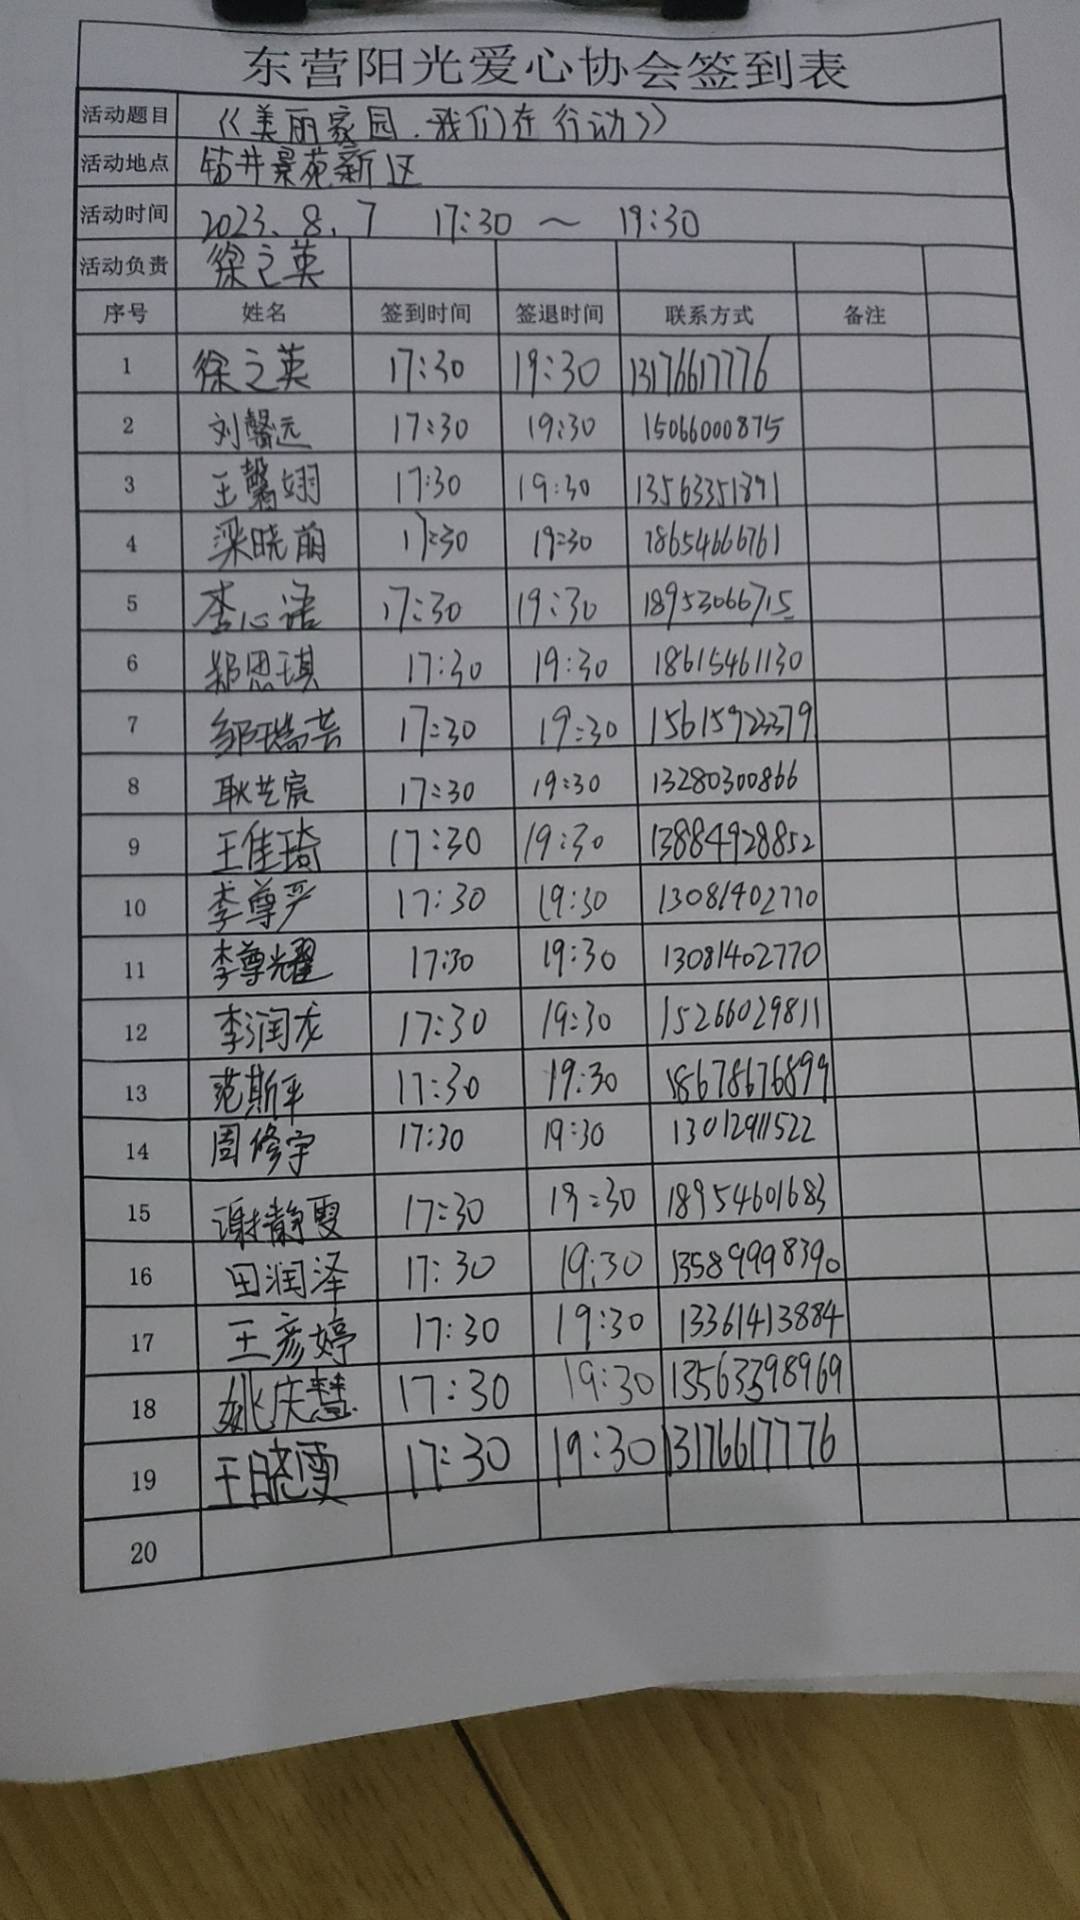 东营阳光爱心协会签到表
活动题目 《美丽家园.我们在行动》
活动地点 钻井景苑新区
活动时间 2023.8.7 17:30～19:30
活动负责 徐之英
序号 姓名 签到时间 签退时间 联系方式 备注
1 徐之英 17:30 19:30 13176617776
2 刘馨远 17:30 19:30 15066000875
3 王馨翊 17:30 19:30 13563351891
4 梁晓萌 17:30 19:30 18654666761
5 李心语 17:30 19:30 18953066715
6 郑思琪 17:30 19:30 18615461130
7 邹瑞芸 17:30 19:30 15615923379
8 耿艺宸 17:30 19:30 13280300866
9 王佳琦 17:30 19:30 13884928852
10 李尊严 17:30 19:30 13081402770
11 李尊耀 17:30 19:30 13081402770
12 李润龙 17:30 19:30 15266029811
13 范斯平 17:30 19:30 18678676899
14 周修宇 17:30 19:30 13012911522
15 谢静雯 17:30 19:30 18954601683
16 田润泽 17:30 19:30 13589998390
17 王彦婷 17:30 19:30 13361413884
18 姚庆慧 17:30 19:30 13563398969
19 王晓雯 17:30 19:30 13176617776
20